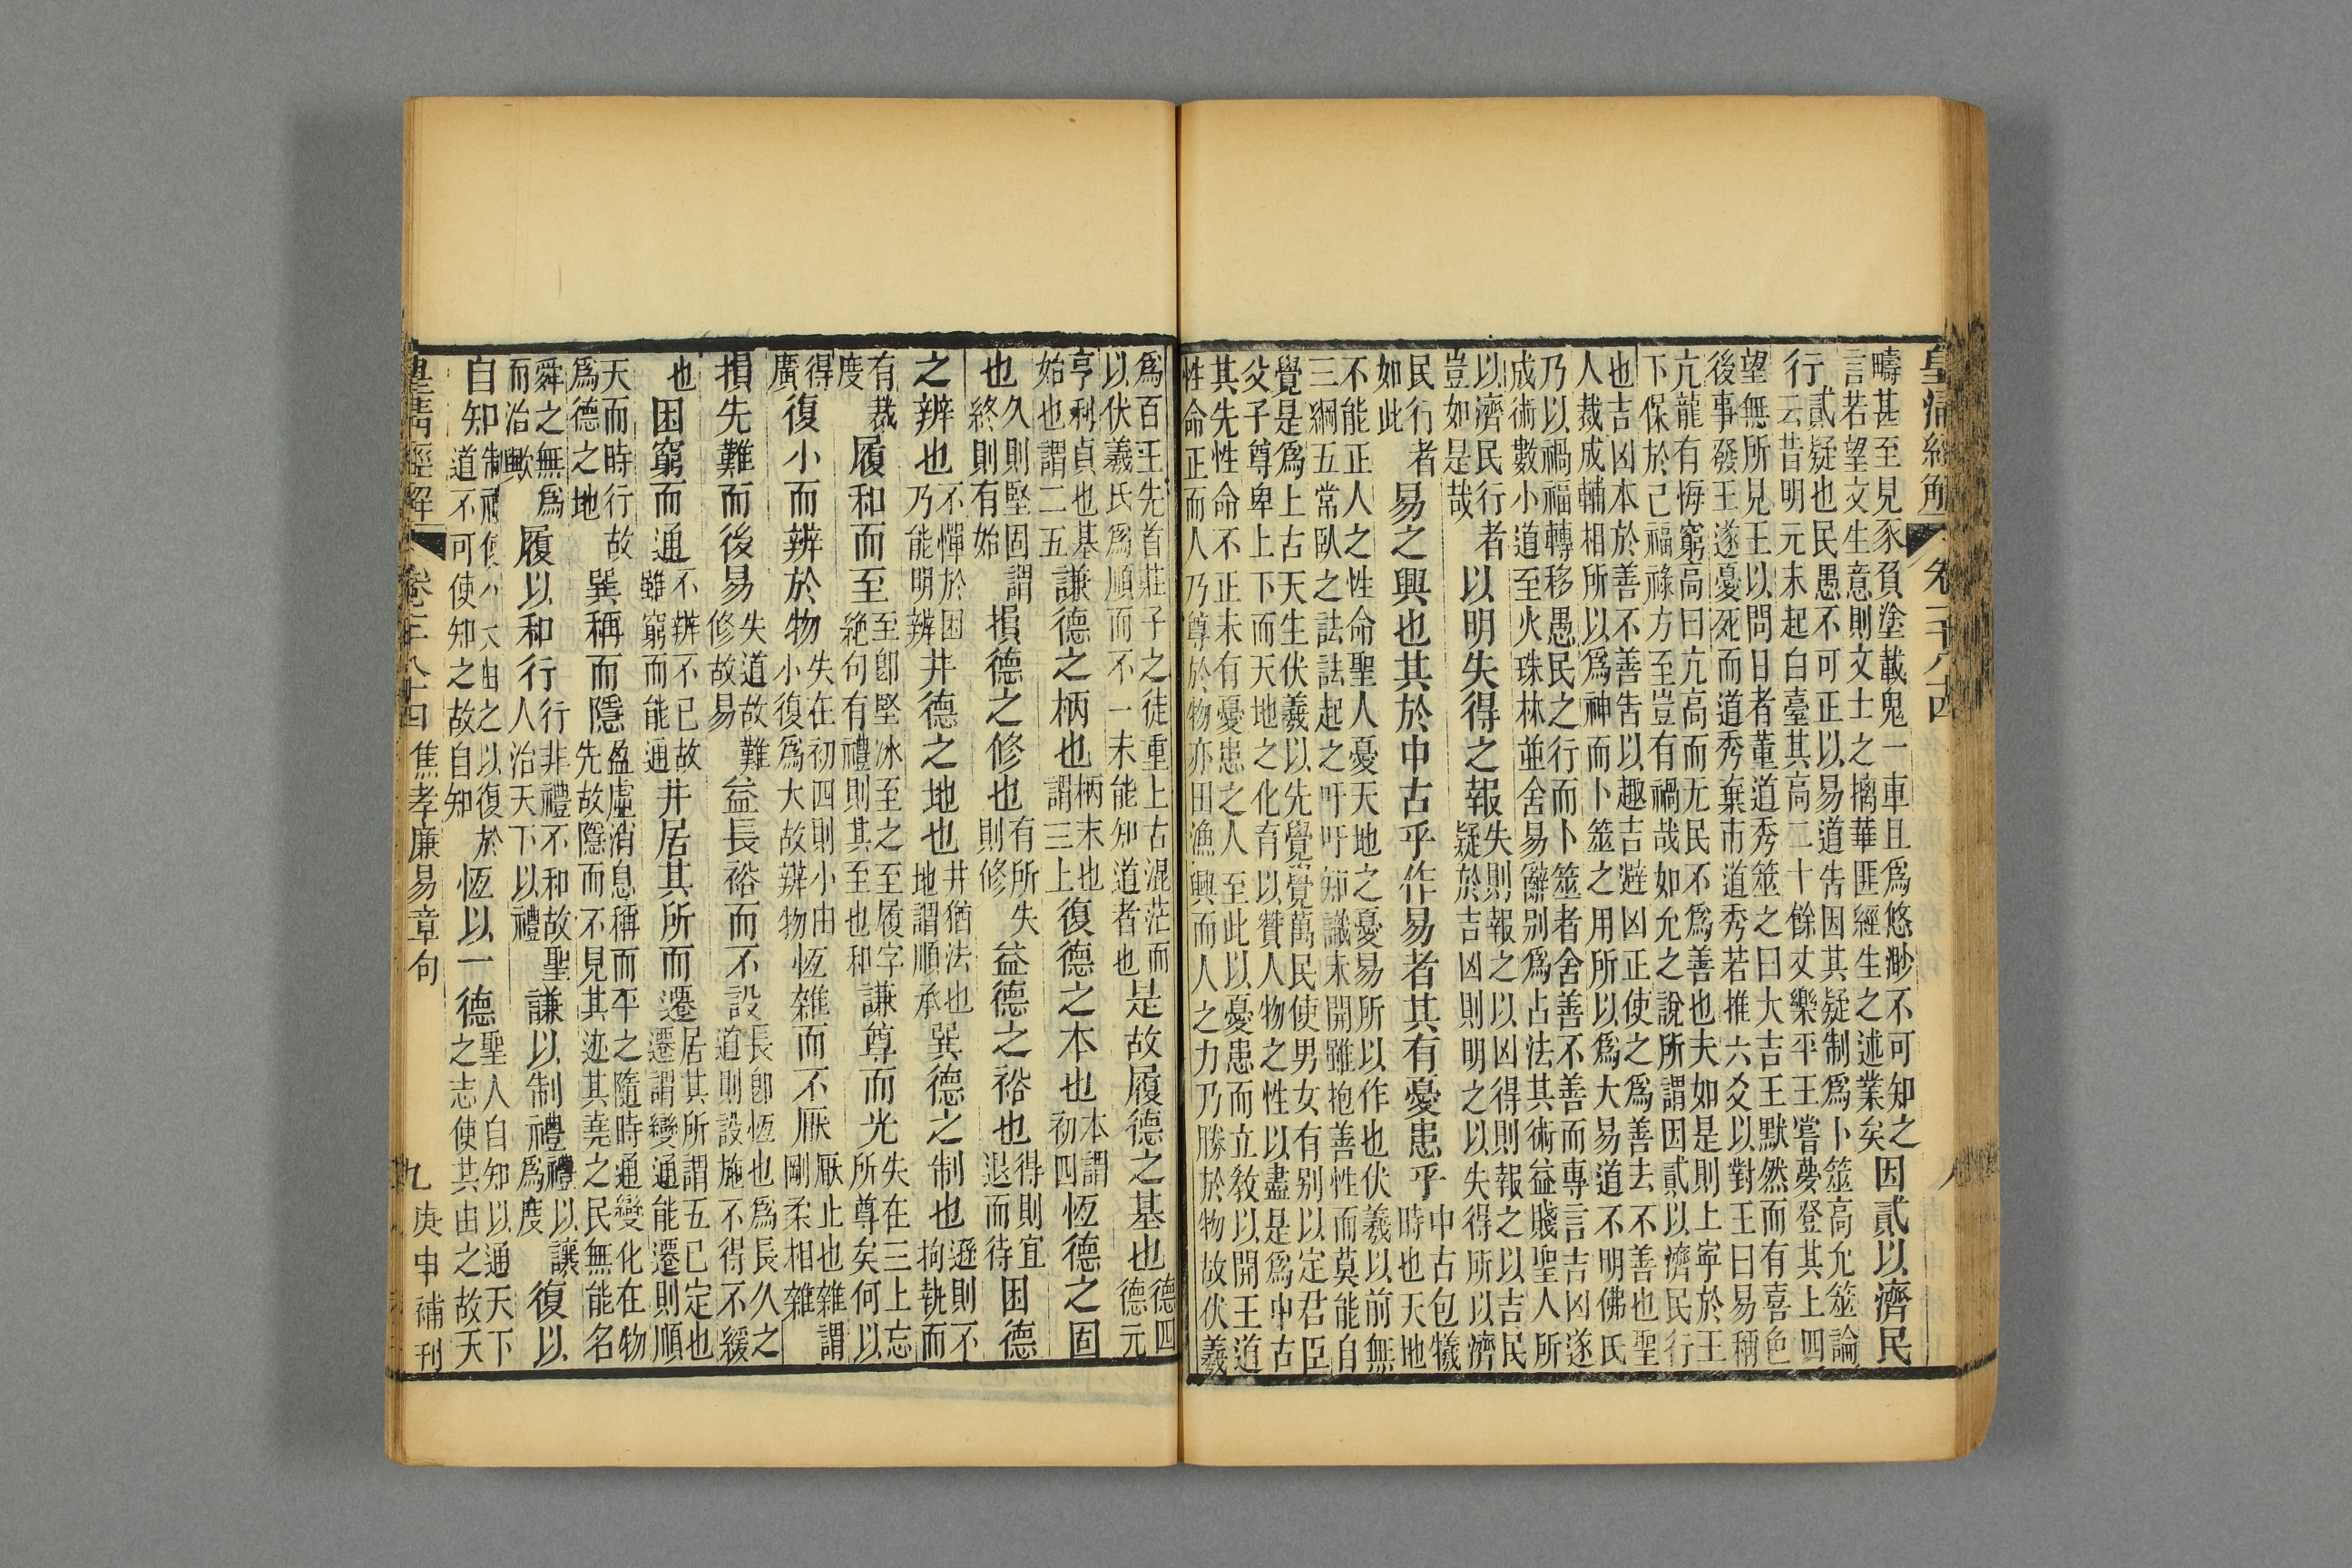 皇清經解 卷一千八十四 八
疇甚至見豕負塗載鬼一車且爲悠渺不可知之
言若望文生意則文士之摛華匪經生之述業矣
因貳以濟民
行
貳疑也民愚不可正以易道吿因其疑制爲卜筮高允筮論
云昔明元末起白臺其高二十餘丈樂平王嘗夢登其上四
望無所見王以問日者董道秀筮之曰大吉王默然而有喜色
後事發王遂憂死而道秀棄市道秀若推六爻以對王曰易稱
亢龍有悔窮高曰亢高而无民不爲善也夫如是則上寧於王
下保於己福祿方至豈有禍哉如允之說所謂因貳以濟民行
也吉凶本於善不善吿以趣吉避凶正使之爲善去不善也聖
人裁成輔相所以爲神而卜筮之用所以爲大易道不明佛氏
乃以禍福轉移愚民之行而卜筮者舍善不善而專言吉凶遂
成術數小道至火珠林並舍易辭别爲占法其術益賤聖人所
以濟民行者
豈如是哉
以明失得之報
失則報之以凶得則報之以吉民
疑於吉凶則明之以失得所以濟
民行者
如此
易之興也其於中古乎作易者其有憂患乎
中古包犧
時也天地
不能正人之性命聖人憂天地之憂易所以作也伏羲以前無
三綱五常臥之詓詓起之吁吁知識未開雖抱善性而莫能自
覺是爲上古天生伏羲以先覺覺萬民使男女有别以定君臣
父子尊卑上下而天地之化育以贊人物之性以盡是爲中古
其先性命不正未有憂患之人至此以憂患而立教以開王道
性命正而人乃尊於物亦田漁興而人之力乃勝於物故伏羲
爲百王先首莊子之徒重上古混茫而
以伏羲氏爲順而不一未能知道者也
是故履德之基也
德四
德元
亨利貞也基
始也謂二五
謙德之柄也
柄末也
謂三上
復德之本也
本謂
初四
恆德之固
也
久則堅固謂
終則有始
損德之修也
有所失
則修
益德之裕也
得則宜
退而待
困德
之辨也
不憚於困
乃能明辨
井德之地也
井猶法也
地謂順承
巽德之制也
遜則不
拘執而
有裁
度
履和而至
至卽堅冰至之至履字
絶句有禮則其至也和
謙尊而光
失在三上忘
所尊矣何以
得
廣
復小而辨於物
失在初四則小由
小復爲大故辨物
恆雜而不厭
厭止也雜謂
剛柔相雜
損先難而後易
失道故難
修故易
益長裕而不設
長卽恆也爲長久之
道則設施不得不緩
也
困窮而通
不辨不已故
雖窮而能通
井居其所而遷
居其所謂五已定也
遷謂變通能遷則順
天而時行故
爲德之地
巽稱而隱
盈虛消息稱而平之隨時通變化在物
先故隱而不見其迹其堯之民無能名
舜之無爲
而治歟
履以和行
行非禮不和故聖
人治天下以禮
謙以制禮
禮以讓
爲度
復以
自知
制禮使人 由之以復於
道不可使知之故自知
恆以一德
聖人自知以通天下
之志使其由之故天
皇清經解 卷一千八十四 焦孝廉易章句 九 庚申補刊